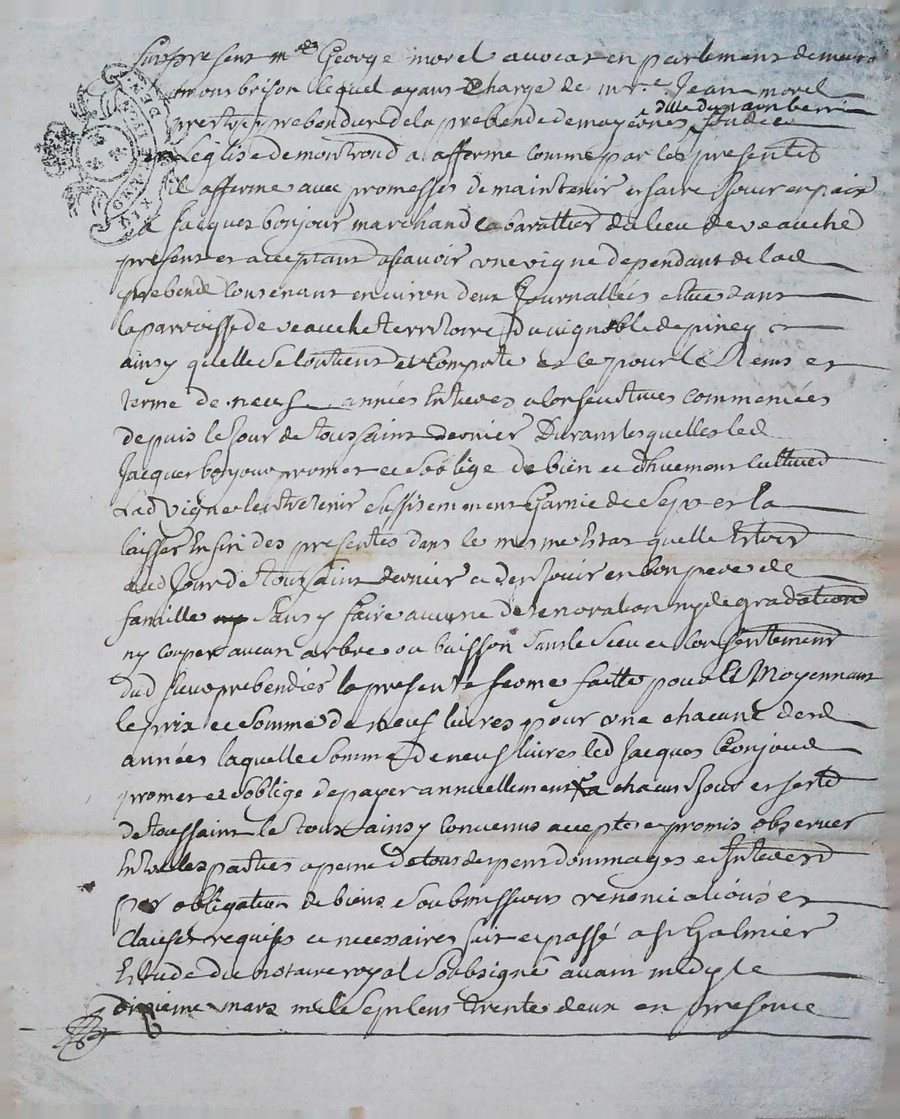 fut present mre George morel avocat en parlement demeurant
a montbrison lequel ayant charge de mre Jean morel
prestre prebendier de la prebende de fondée en
L'eglise de montroud a affermé comme par les presentes
il afferme avec promesses de maintenir et faire Jouir en paix
a Jacques bonjour marchand cabarattier du lieu de veauche
present et acceptant asçavoir une vigne dependant de lad
prebende Contenant environ deux Journallées située dans
la parroisse de veauche territoire du vignoble de piney
ainsy quelle se Contient et Comporte et ce pour le tems et
terme de neuf années Entieres et Consecutives commencées
depuis le Jour de toussaint dernier Durant lesquelles led
Jacques bonjour promet et s'oblige de bien et duement Cultiver
Lad vigne L'entretenir suffisemment Garnie de Sep et la
laisser En fin des presentes dans le mesme Estat quelle Estoit
aud Jour de toussaint dernier et den Jouir en bon pere de
famille sans y faire aucune deterioration ny degradation
ny couper aucun arbre ou buisson sans le sceu et Consentement
dud sieur prebendier la presente ferme faitte pour Et Moyennant
le prix et somme de neuf livres pour une chacune desd
années laquelle somme de neuf livres led Jacques Bonjour
promet et s'oblige de payer annuellement a chacun Jour et feste
de toussaint le tout ainsy convenu accepté et promis observer
Entre les parties a peine de tous depens dommages et Interest
par obligation de biens soubmissions renonciations et
Clauses requises et necessaires fait et passé a st Galmier
Estude du notaire royal soubsigné avant midy le
dixieme mars mil sept cent trente deux en presence